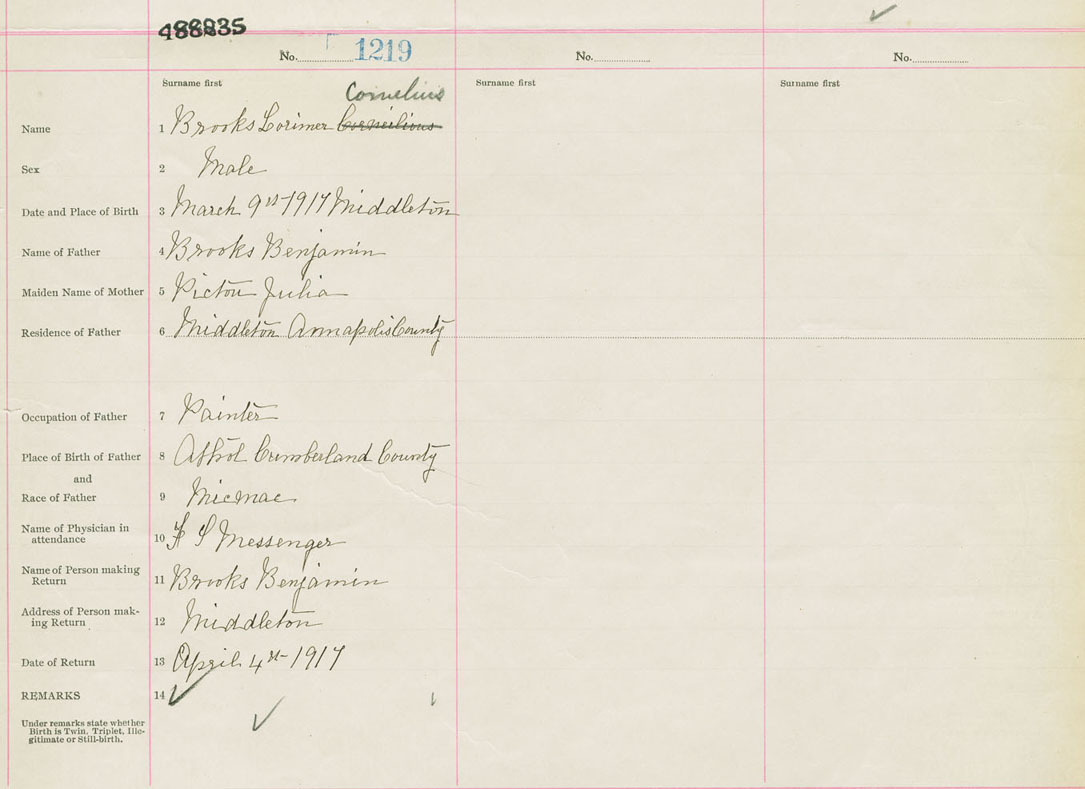 488835
No. 1219 No. No.
Surname first Surname first Surname first
Cornelius
Name 1 Brooks Lorimer Corneilious
Sex 2 Male
Date and Place of Birth 3 March 9st 1917 Middleton
Name of Father 4 Brooks Benjamin
Maiden Name of Mother 5 Picton Julia
Residence of Father 6 Middleton Annapolis County
Occupation of Father 7 Painter
Place of Birth of Father 8 Athol Cumberland County
and
Race of Father 9 Micmac
Name of Physician in
attendance 10 F S Messenger
Name of Person making
Return 11 Brooks Benjamin
Address of Person mak-
ing Return 12 Middleton
Date of Return 13 April 4st 1917
REMARKS 14
Under remarks state whether
Birth is Twin, Triplet, Ille-
gitimate or Still-birth.